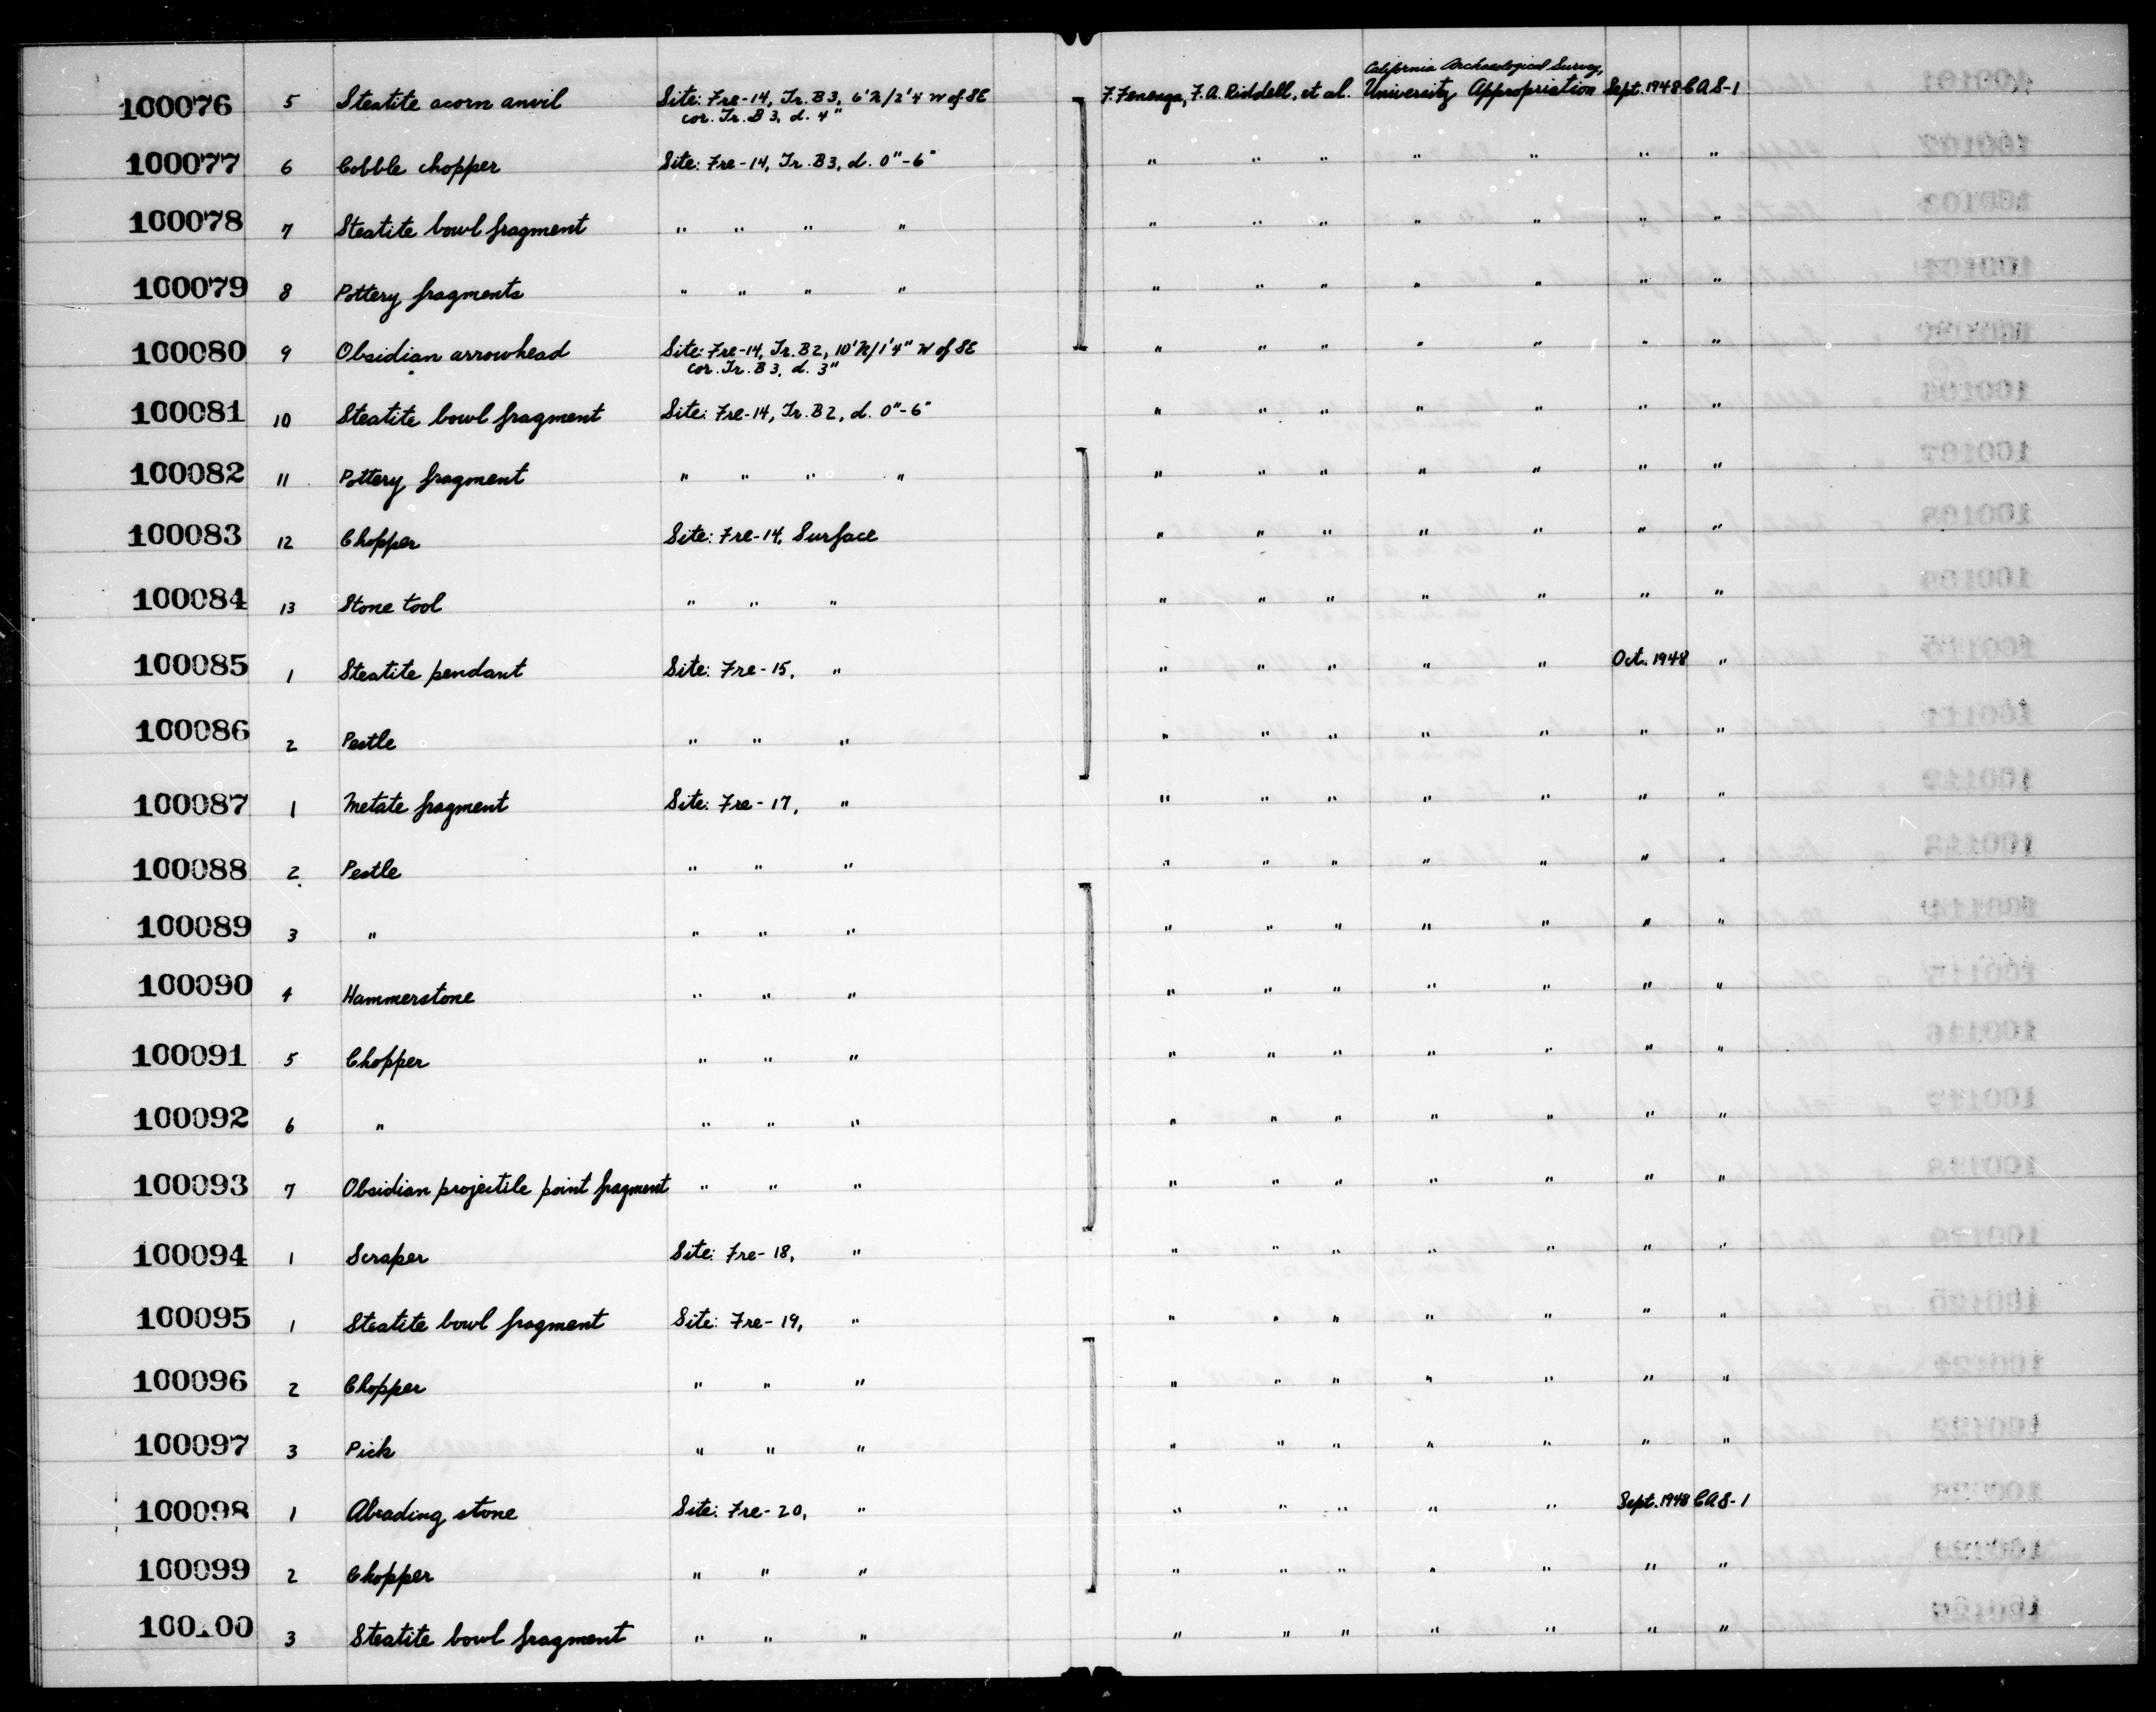 California Archaeological Survey,
100076 5 Steatite acorn anvil Site: Fre-14, Tr. B3, 6'N/2'4 W of SE F. Fenenga, F.A. Riddell, et al. University Appropriation Sept. 1948 CAS-1
cor. Tr. B3, d. 4"
100077 6 Cobble chopper Site: Fre-14, Tr. B3, d. 0"-6" " " " " " " "
100078 7 Steatite bowl fragment " " " " " " " " " " "
100079 8 Pottery fragments " " " " " " " " " " "
100080 9 Obsidian arrowhead Site: Fre-14, Tr. B2, 10'N/1'4" W of SE " " " " " " "
cor. Tr. B3, d. 3"
100081 10 Steatite bowl fragment Site: Fre-14, Tr. B2, d. 0"-6" " " " " " " "
100082 11 Pottery fragment " " " " " " " " " " "
100083 12 Chopper Site: Fre-14, Surface " " " " " " "
100084 13 Stone tool " " " " " " " " " "
100085 1 Steatite pendant Site: Fre-15, " " " " " " Oct. 1948 "
100086 2 Pestle " " " " " " " " " "
100087 1 Metate fragment Site: Fre-17, " " " " " " " "
100088 2 Pestle " " " " " " " " " "
100089 3 " " " " " " " " " " "
100090 4 Hammerstone " " " " " " " " " "
100091 5 Chopper " " " " " " " " " "
100092 6 " " " " " " " " " " "
100093 7 Obsidian projectile point fragment " " " " " " " " " "
100094 1 Scraper Site: Fre-18, " " " " " " " "
100095 1 Steatite bowl fragment Site: Fre-19, " " " " " " " "
100096 2 Chopper " " " " " " " " " "
100097 3 Pick " " " " " " " " " "
100098 1 Abrading stone Site: Fre-20, " " " " " " Sept. 1948 CAS-1
100099 2 Chopper " " " " " " " " " "
100100 3 Steatite bowl fragment " " " " " " " " " "